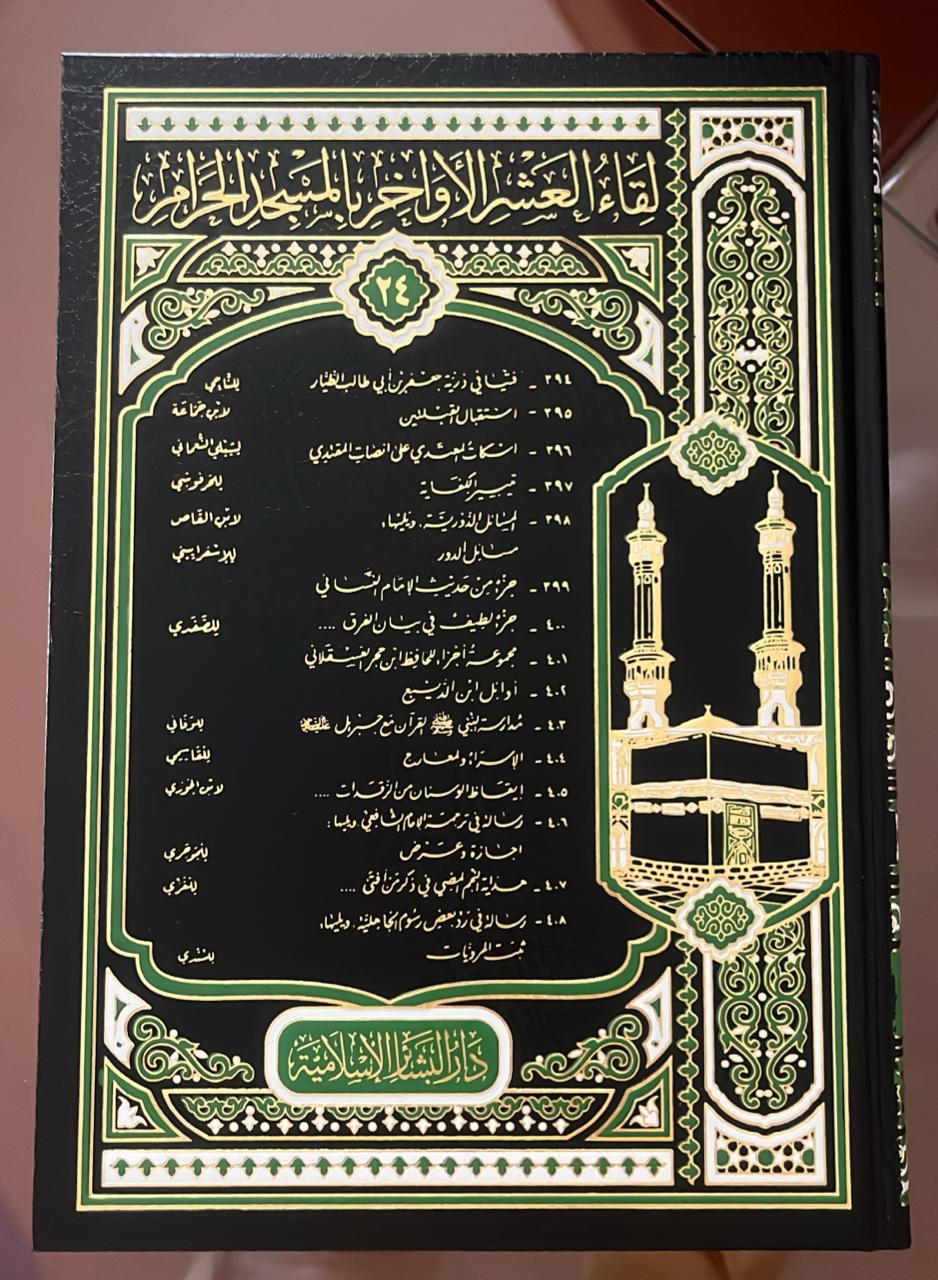 لقاء العشر الأواخر بالمسجد الحرام
٢٤
٣٩٤ - فتيا في ذرية جعفر بن أبي طالب الطيار للناجي
٣٩٥ - استقبال القبلتين لابن جماعة
٣٩٦ - إسكات المعتدي على انصات المقتدي لشبلي النعماني
٣٩٧ - تيسير الكفاية للخرفوشي
٣٩٨ - المسائل الدورية، ويليها: لابن القاص
مسائل الدور للإسفراييني
٣٩٩ - جزء من حديث الإمام النسائي
٤٠٠ - جزء لطيف في بيان الفرق .... للصفدي
٤٠١ - مجموعة أجزاء للحافظ ابن حجر العسقلاني
٤٠٢ - أوائل ابن الديبع
٤٠٣ - مدارسة النبي ﷺ القرآن مع جبريل عليه السلام
٤٠٤ - الإسراء والمعراج
٤٠٥ - إيقاظ الوسنان من الرقدات .... لابن الجوزي
٤٠٦ - رسالة في ترجمة الإمام الشافعي ويليها:
اجازة وعرض للجوجري
٤٠٧ - هداية النجم المضي في ذكر من أفتى .... للغزي
٤٠٨ - رسالة في رد بعض رسوم الجاهلية، ويليها:
ثبت المرويات
دار البشائر الإسلامية